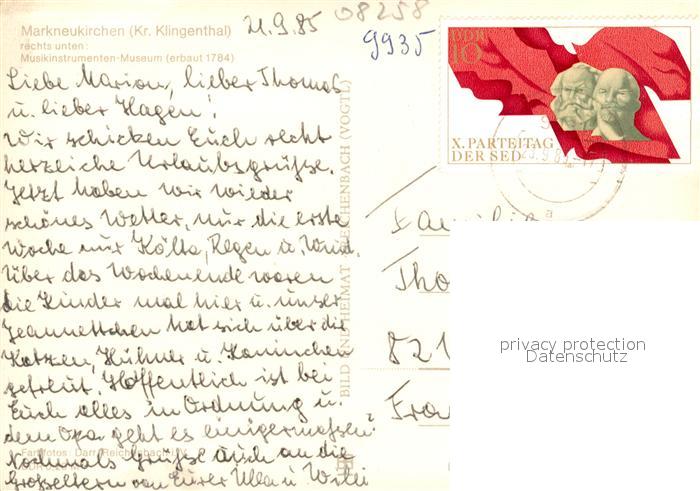 Markneukirchen (Kr. Klingenthal)
rechts unten:
Musikinstrumenten-Museum (erbaut 1784)
21.9.85
08258
9935
Liebe Marion, lieber Thomas
u. lieber Hagen!
Wir schicken Euch recht
herzliche Urlaubsgrüsse.
Jetzt haben wir wieder
schönes Wetter, nur die erste
Woche nur Kälte, Regen u. Wind.
Über das Wochenende waren
die Kinder mal hier u. unser
Jeannettchen hat sich über die
Katzen, Hühner u. Kaninchen
gefreut. Hoffentlich ist bei
Euch alles in Ordnung u.
dem Opa geht es einigermaßen?
Nochmals Grüsse auch an die
Großeltern von Eurer Ulla u. Willi
Farbfotos: Darr, Reichenbach i. V.
BILD UND HEIMAT REICHENBACH (VOGTL)
DDR
10
X. PARTEITAG
DER SED
Familie
Tho
821
Fra
privacy protection
Datenschutz